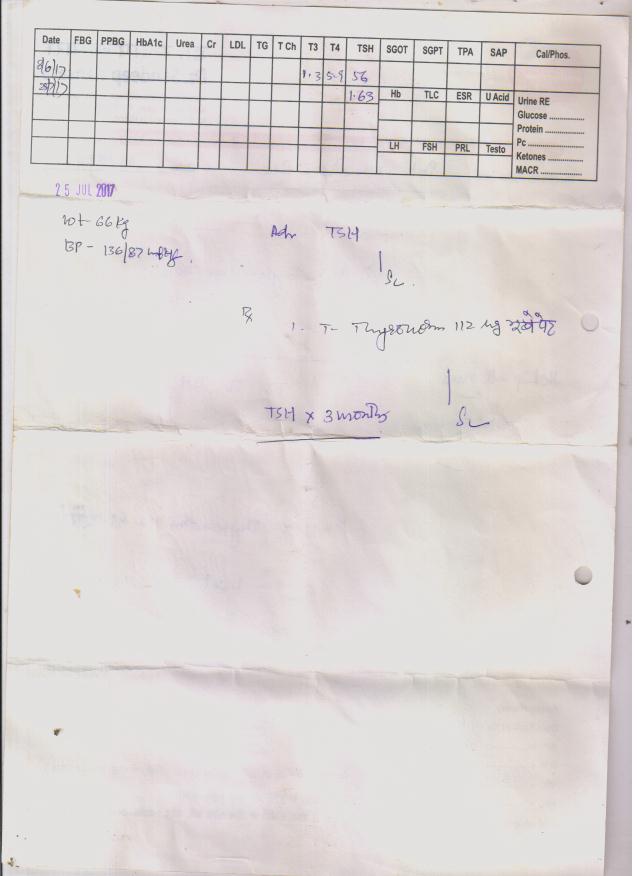 Date FBG PPBG HbA1c Urea Cr LDL TG T Ch T3 T4 TSH SGOT SGPT TPA SAP Cal/Phos.
8/6/17 1.3 5.9 56
25/7/17 1.63
Hb TLC ESR U Acid Urine RE
Glucose ..............
Protein ..............
LH FSH PRL Testo Pc ..............
Ketones ..............
MACR ..............
25 JUL 2017
wt- 66 kg
BP - 136/87 mmHg.
Adv TSH
Rx
1. T- Thyronorm 112 ug
TSH x 3 months